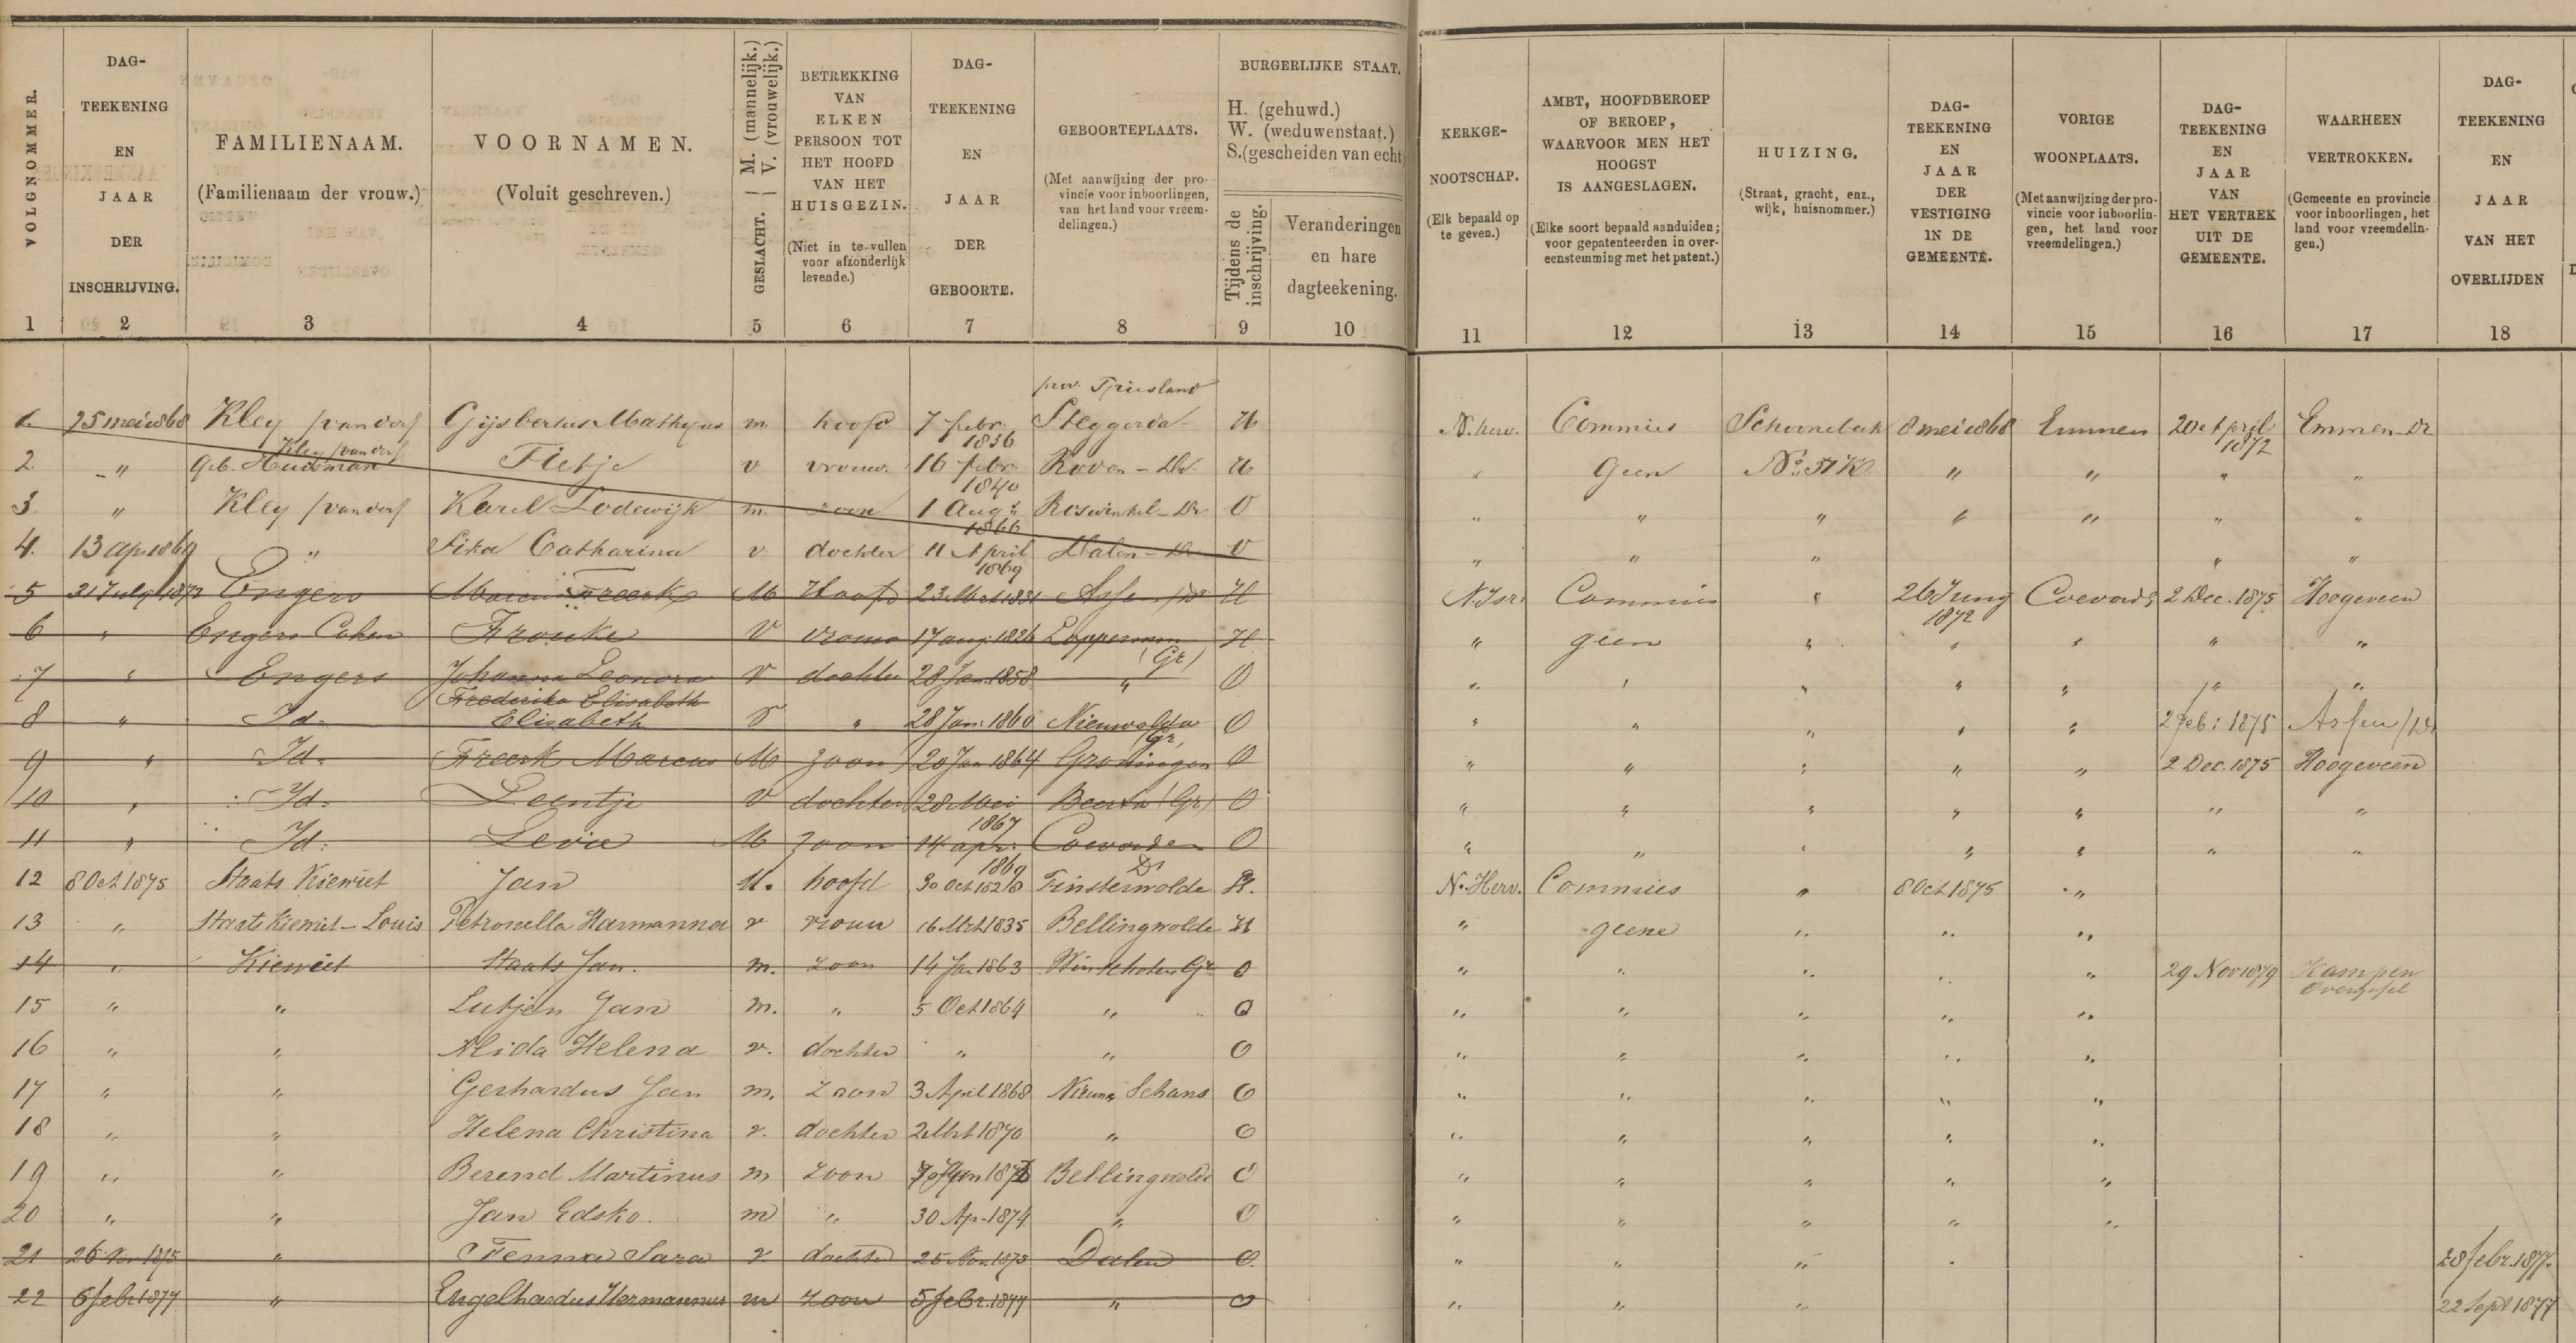 VOLGNOMMER.
DAG-
TEEKENING
EN
JAAR
DER
INSCHRIJVING.
FAMILIENAAM.
(Familienaam der vrouw.)
VOORNAMEN.
(Voluit geschreven.)
GESLACHT. { M. (mannelijk.)
V. (vrouwelijk.)
BETREKKING
VAN
ELKEN
PERSOON TOT
HET HOOFD
VAN HET
HUISGEZIN.
(Niet in te vullen
voor afzonderlijk
levende.)
DAG-
TEEKENING
EN
JAAR
DER
GEBOORTE.
GEBOORTEPLAATS.
(Met aanwijzing der pro-
vincie voor inboorlingen,
van het land voor vreem-
delingen.)
BURGERLIJKE STAAT.
H. (gehuwd.)
W. (weduwenstaat.)
S. (gescheiden van echt)
Tijdens de
inschrijving.
Veranderingen
en hare
dagteekening.
KERKGE-
NOOTSCHAP.
(Elk bepaald op
te geven.)
AMBT, HOOFDBEROEP
OF BEROEP,
WAARVOOR MEN HET
HOOGST
IS AANGESLAGEN.
(Elke soort bepaald aanduiden;
voor gepatenteerden in over-
eenstemming met het patent.)
HUIZING.
(Straat, gracht, enz.,
wijk, huisnommer.)
DAG-
TEEKENING
EN
JAAR
DER
VESTIGING
IN DE
GEMEENTE.
VORIGE
WOONPLAATS.
(Met aanwijzing der pro-
vincie voor inboorlin-
gen, het land voor
vreemdelingen.)
DAG-
TEEKENING
EN
JAAR
VAN
HET VERTREK
UIT DE
GEMEENTE.
WAARHEEN
VERTROKKEN.
(Gemeente en provincie
voor inboorlingen, het
land voor vreemdelin-
gen.)
DAG-
TEEKENING
EN
JAAR
VAN HET
OVERLIJDEN
1 2 3 4 5 6 7 8 9 10 11 12 13 14 15 16 17 18
prov. Friesland
1. 25 mei 1868 Kley (van der) Gijsbertus Mathijus m. hoofd 7 febr. 1836 Steggerda H N. herv. Commies Schoonebeek 8 mei 1868 Emmen 20 April 1872 Emmen Dr
Kley (van der)
2. " Geb. Huisman Fietje v vrouw 16 febr. 1840 H " Geen No. 31K " " " "
3. " Kley (van der) Karel Lodewijk m. zoon 1 Aug. 1866 Roswinkel Dr O " " " " " " "
4. 13 ap. 1869 " Sika Catharina v. dochter 11 April 1869 Dalen Dr O " " " " "
5 31 July 1872 Engers Freerk M Hoofd 23 Assen (Dr) H N. Isr. Commies " 26 Juny 1872 Coevord 2 Dec. 1875 Hoogeveen
6 " Engers Cohen Frouke V vrouw 17 aug. 1826 Loppersum (Gr) H " geen " " " " "
7 " Engers Johanna Leonora V dochter 28 Jan. 1858 " O " " " " " " "
Frederika Elisabeth
8 " Id. Elisabeth V " 28 Jan. 1860 Nieuwolda Gr. O " " " " " 2 feb: 1875 Assen (Dr)
9 " Id. Freerk Marcus M zoon 20 Jan 1864 Groningen O " " " " " 2 Dec. 1875 Hoogeveen
10 " Id. Leentje V dochter 28 Mei 1867 Beerta (Gr) O " " " " " " "
11 " Id. Levie M zoon 14 apr. 1869 Coevorden Dr O " " " " " " "
12 8 Oct 1875 Staats Kiewiet Jan M. hoofd 30 Oct Finsterwolde H. N. Herv. Commies " 8 Oct 1875 "
13 " Staats Kiewiet - Louis Petronella Harmanna v vrouw 16 Mrt 1835 Bellingwolde H " geene " " "
14 " Kiewiet Staats Jan. m. zoon 14 Jan 1863 Winschoten Gr. O " " " " " 29 Nov 1879 Kampen Overijssel
15 " " Lutjen Jan m. " 5 Oct 1864 " O " " " " "
16 " " Alida Helena v. dochter " " O " " " " "
17 " " Gerhardus Jan m. zoon 3 April 1868 Nieuwe Schans O " " " " "
18 " " Helena Christina v. dochter 2 Mrt 1870 " O " " " " "
19 " " Berend Martinus m zoon Bellingwolde O " " " " "
20 " " Jan Edsko. m " 30 Ap. 1874 " O " " " " "
21 26 Nov 1875 " Fenna Sara v. dochter 25 Nov. 1875 Dalen O. " " " " 28 febr. 1877.
22 6 febr 1877 " Engelhardus Hermannus m zoon 5 febr. 1877 " O " " " 22 Sept 1877